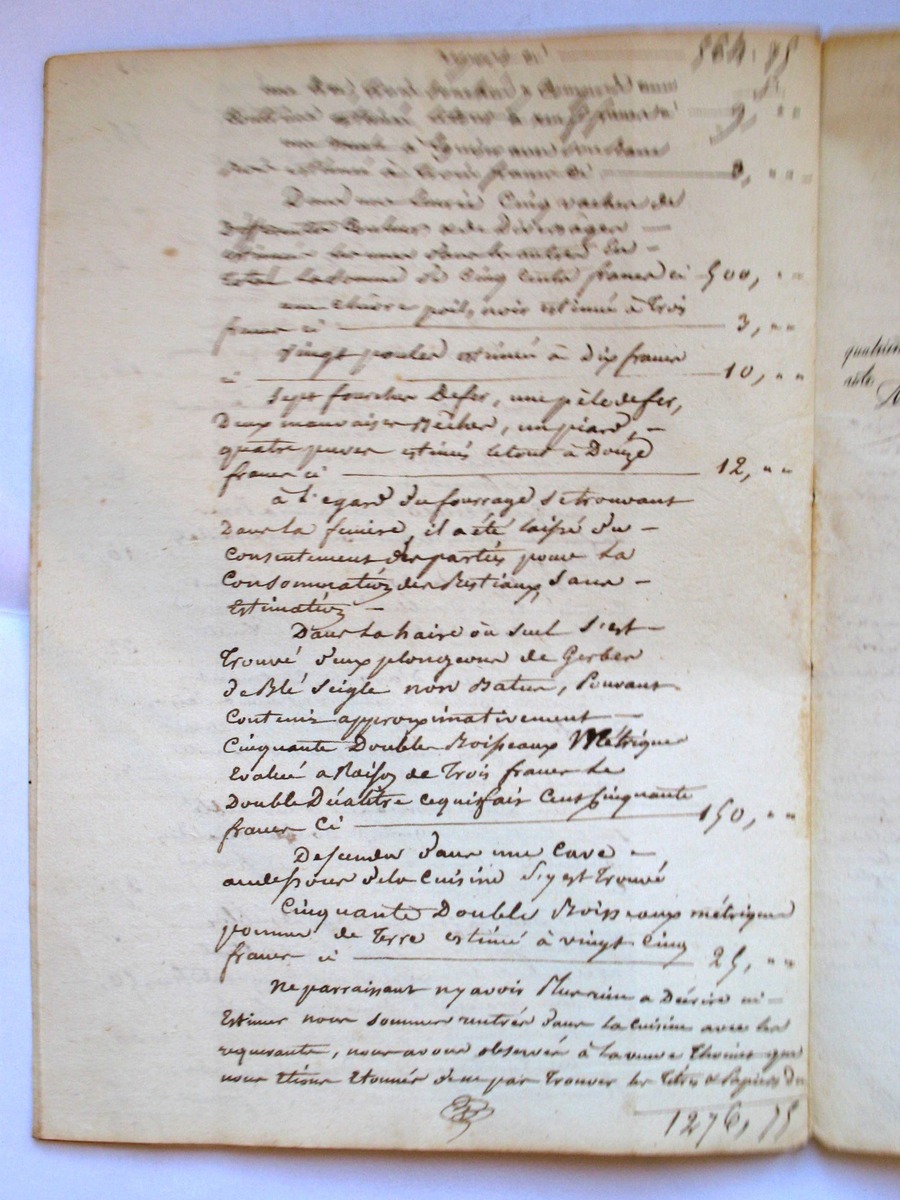 564, 75
9, " "
3, " "
Dans une Ecurie Cinq vaches de
differentes Couleurs & de Divers ages —
Estimées les unes dans les autres En —
total la somme de Cinq cents francs ci 500, " "
une chèvre poil noir estimée à Trois
francs ci 3, " "
Vingt poules estimées à Dix francs
ci 10, " "
Sept fourches De fer, une pèle de fer,
Deux mauvaises Bêches, un piard, —
quatre estimés le tout à Douze
francs ci 12, " "
à l'egard du fourrage se trouvant
Dans la feniere, il a été laissé du —
Consentement des parties pour La
Consommation des Bestiaux, Sans —
Estimation —
Dans La haire ou suel s'est —
Trouvé deux plongeons de Gerbes
de Blé Seigle non Batus, Pouvant
Contenir approximativement —
Cinquante Doubles Boisseaux Métriques
Evalué a Raison de Trois francs Le
Double Décalitre ce qui fait Cent Cinquante
francs Ci 150, " "
Descendu dans une Cave —
au dessous de la Cuisine s'y est Trouvé
Cinquante Doubles Boisseaux métriques
pommes de Terre estimé à vingt Cinq
francs ci 25, " "
Ne parraissant ny avoir Plus rien a Décrire ni —
Estimer nous sommes rentrés dans la Cuisine avec les
requerants, nous avons observés à la veuve que
nous Etions Etonnés de ne pas Trouver les Titres & Papiers du
1276, 75